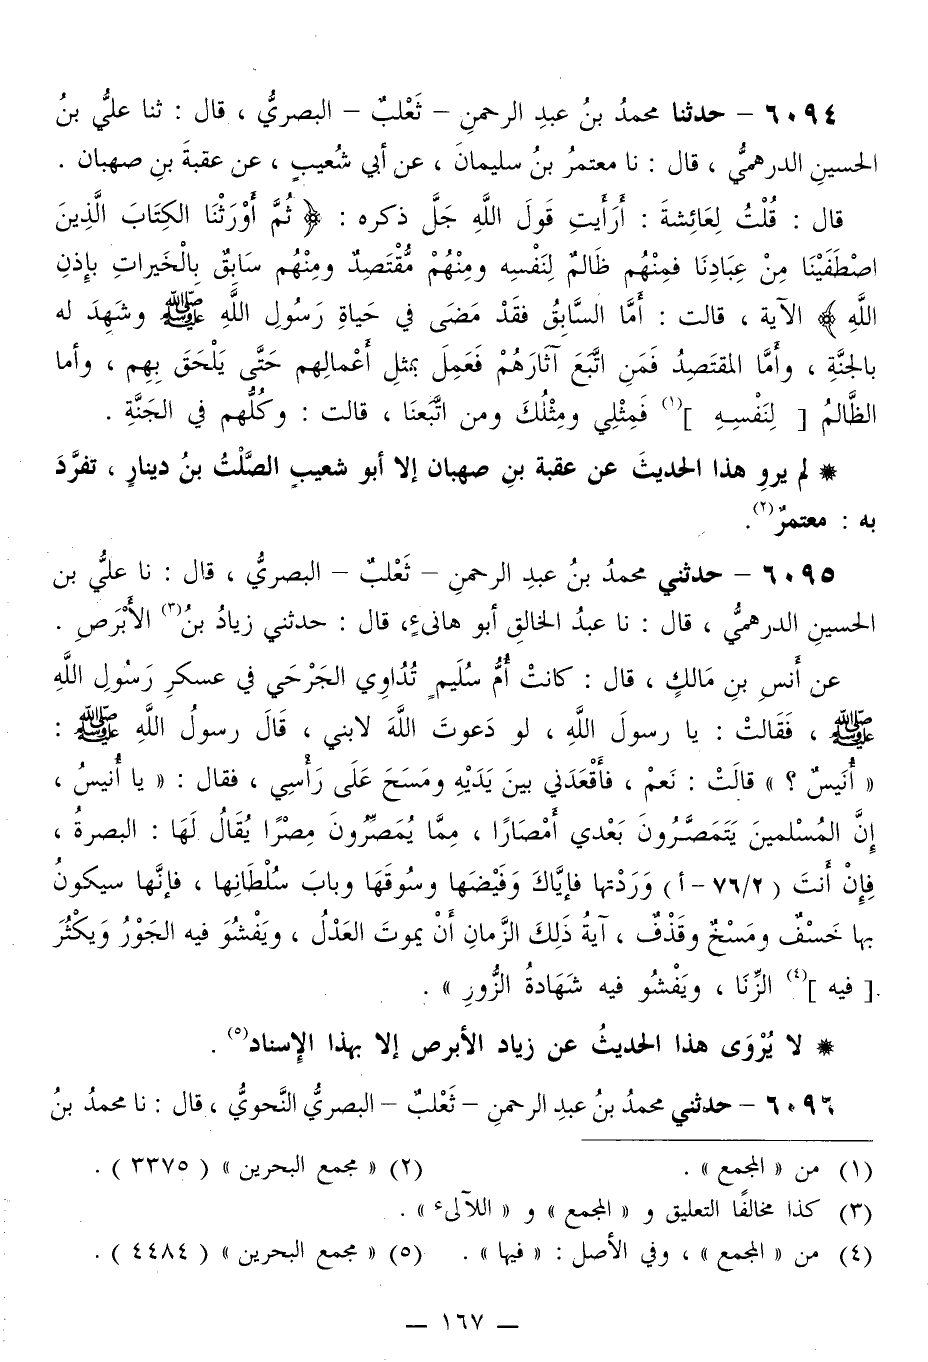 ٦٠٩٤ – حدثنا محمدُ بنُ عبدِ الرحمنِ – ثَعْلبٌ – البصريُّ ، قال : ثنا عليُّ بنُ
الحسينِ الدرهميُّ ، قال : نا معتمرُ بنُ سليمانَ ، عن أبي شُعيبٍ ، عن عقبةَ بنِ صهبان .
قال : قُلْتُ لِعَائِشةَ : أَرَأَيتِ قَولَ اللَّهِ جَلَّ ذكره : ﴿ ثُمَّ أَوْرَثْنَا الكِتَابَ الَّذِينَ
اصْطَفَيْنَا مِنْ عِبَادِنَا فمِنْهُم ظَالمٌ لِنَفْسِه ومِنْهُمْ مُّقْتَصِدٌ ومِنْهُم سَابِقٌ بِالْخَيراتِ بإِذنِ
اللَّهِ ﴾ الآية ، قالت : أَمَّا السَّابِقُ فقَدْ مَضَى في حَياةِ رَسُولِ اللَّهِ ﷺ وشَهِدَ له
بالجنَّةِ ، وأَمَّا المقتَصِدُ فَمَنِ اتَّبَعَ آثَارَهُمْ فَعَمِلَ بمثلِ أَعْمالِهم حَتَّى يَلْحَقَ بِهِم ، وأما
الظَّالمُ [ لِنَفْسِـهِ ](١) فَمِثْلِي ومِثْلُكَ ومن اتَّبَعنَا ، قالت : وكُلُّهم في الجَنَّةِ .
* لم يروِ هذا الحديثَ عن عقبة بنِ صهبان إلا أبو شعيبٍ الصَّلْتُ بنُ دينارٍ ، تفرَّدَ
به : معتمرٌ(٢).
٦٠٩٥ – حدثني محمدُ بنُ عبدِ الرحمنِ – ثَعْلبٌ – البصريُّ ، قال : نا عليُّ بن
الحسينِ الدرهميُّ ، قال : نا عبدُ الخالقِ أبو هانىءٍ، قال : حدثني زيادُ بنُ(٣) الأَبْرَصِ .
عن أَنَسِ بنِ مَالكٍ ، قال : كانتْ أُمُّ سُلَيمٍ تُدَاوِي الجَرْحَي في عسكرِ رَسُولِ اللَّهِ
ﷺ ، فَقَالتْ : يا رسولَ اللَّهِ ، لو دَعوتَ اللَّهَ لابني ، قَالَ رسولُ اللَّهِ ﷺ :
« أُنَيسٌ ؟ » قالَتْ : نَعمْ ، فأَقْعَدَني بينَ يَدَيْهِ ومَسَحَ عَلَى رَأْسِي ، فقال : « يا أُنيسُ ،
إِنَّ المُسْلمينَ يَتَمَصَّرُونَ بَعْدي أَمْصَارًا ، مِمَّا يُمَصِّرُونَ مِصْرًا يُقَالُ لَهَا : البصرةُ ،
فإِنْ أَنتَ ( ٧٦/٢ – أ ) وَرَدْتها فإيَّاكَ وَفَيْضَها وسُوقَهَا وبابَ سُلْطَانِها ، فإنَّها سيكونُ
بها خَسْفٌ ومَسْخٌ وقَذْفٌ ، آيَةُ ذَلِكَ الزَّمانِ أَنْ يموتَ العَدْلُ ، ويَفْشُوَ فيه الجَوْرُ وَيَكْثُرَ
[ فيه ](٤) الزِّنَا ، ويَفْشُو فيه شَهَادةُ الزُّورِ » .
* لا يُرْوَى هذا الحديثُ عن زياد الأبرص إلا بهذا الإِسناد(٥) .
٦٠٩٦ – حدثني محمدُ بنُ عبدِ الرحمنِ – ثَعْلبٌ – البصريُّ النَّحويُّ ، قال : نا محمدُ بنُ
(١) من « المجمع » . (٢) « مجمع البحرين » ( ٣٣٧٥ ) .
(٣) كذا مخالفًا التعليق و « المجمع » و « اللآلىء » .
(٤) من « المجمع » ، وفي الأصل : « فيها » . (٥) « مجمع البحرين » ( ٤٤٨٤ ) .
— ١٦٧ —